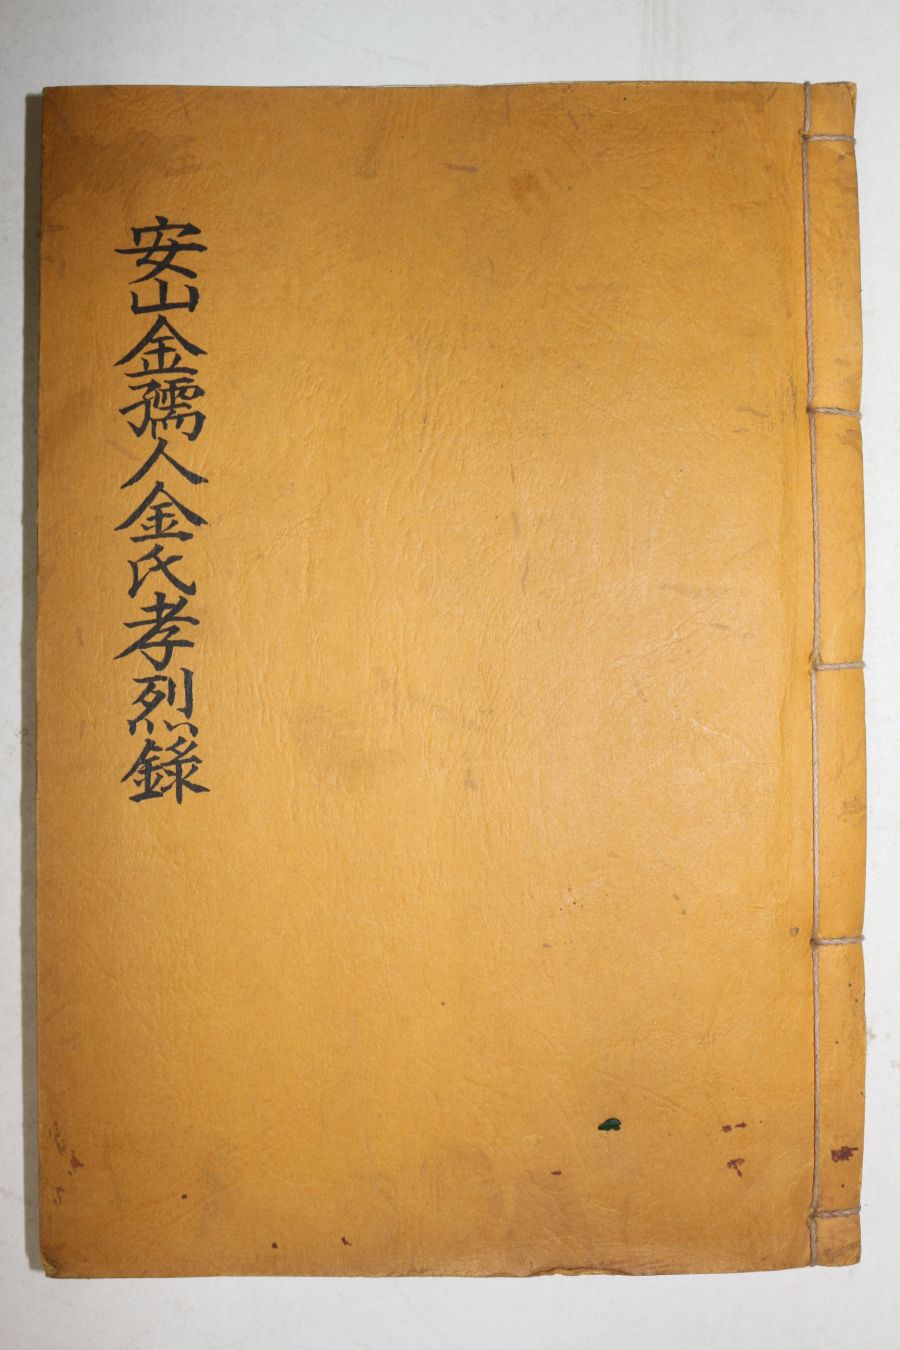 安山金孺人金氏孝烈錄